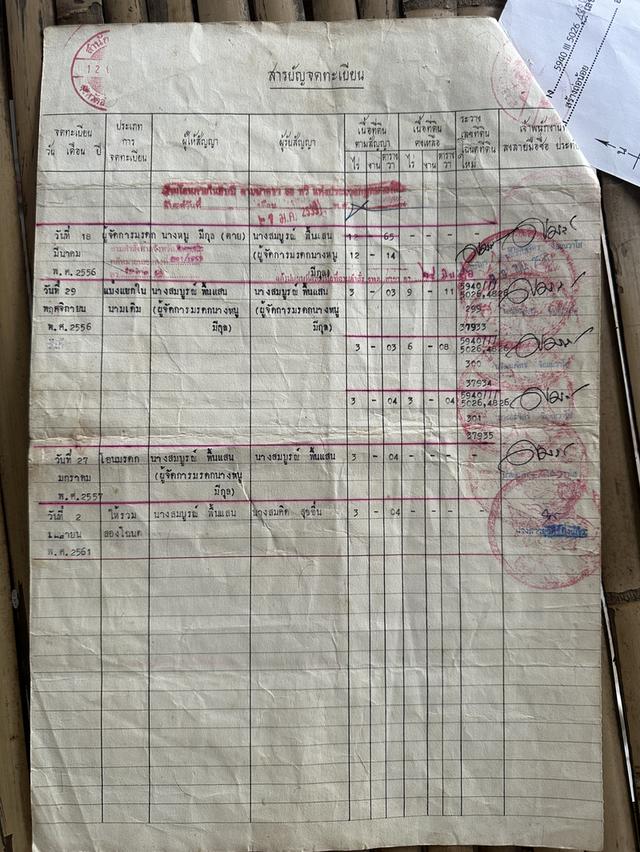 5940 III 5026
สร้างถอน้อย
สารบัญจดทะเบียน
จดทะเบียน
วัน เดือน ปี
ประเภท
การ
จดทะเบียน
ผู้ให้สัญญา
ผู้รับสัญญา
เนื้อที่ดิน
ตามสัญญา
ไร่ งาน ตาราง
วา
เนื้อที่ดิน
คงเหลือ
ไร่ งาน ตาราง
วา
ระวาง
เลขที่ดิน
โฉนดที่ดิน
ใหม่
เจ้าพนักงาน
ลงลายมือชื่อ ประทับ
วันที่ 18 ผู้จัดการมรดก นางหนู มีกุล (ตาย) นางสมบูรณ์ พื้นแสน 12 - 65
มีนาคม (ผู้จัดการมรดกนางหนู 12 - 14
พ.ศ.2556 มีกุล)
วันที่ 29 แบ่งแยกใน นางสมบูรณ์ พื้นแสน นางสมบูรณ์ พื้นแสน 3 - 03 9 - 11 5940///
พฤศจิกายน นามเดิม (ผู้จัดการมรดกนางหนู (ผู้จัดการมรดกนางหนู 5026,4826
มีกุล) มีกุล) 299
พ.ศ.2556 37933
3 - 03 6 - 08 5940///
5026,4826
300
37934
3 - 04 3 - 04 5940///
5026,4826
301
37935
วันที่ 27 โอนมรดก นางสมบูรณ์ พื้นแสน นางสมบูรณ์ พื้นแสน 3 - 04 - - - -
มกราคม (ผู้จัดการมรดกนางหนู
พ.ศ.2557 มีกุล)
วันที่ 2 ให้รวม นางสมบูรณ์ พื้นแสน นางสมคิด สุขยืน 3 - 04 - - - -
เมษายน สองโฉนด
พ.ศ.2561